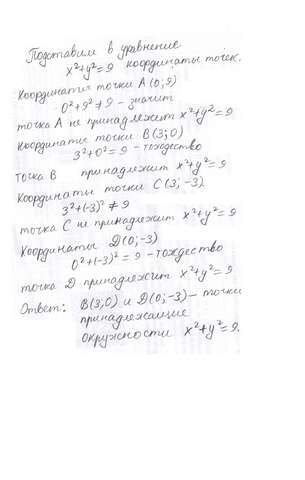 Подставим в уравнение
x²+y²=9 координаты точек.
Координатие точки А(0;9)
0²+9²≠9 - значит
точка А не принадлежит x²+y²=9
Координатие точки В(3;0)
3²+0²=9 - тождество
точка В принадлежит x²+y²=9
Координаты точки С(3;-3)
3²+(-3)²≠9
точка С не принадлежит x²+y²=9
Координаты D(0;-3)
0²+(-3)²=9 - тождество
точка D принадлежит x²+y²=9
Ответ: В(3;0) и D(0;-3) - точки
принадлежащие
окружности x²+y²=9.